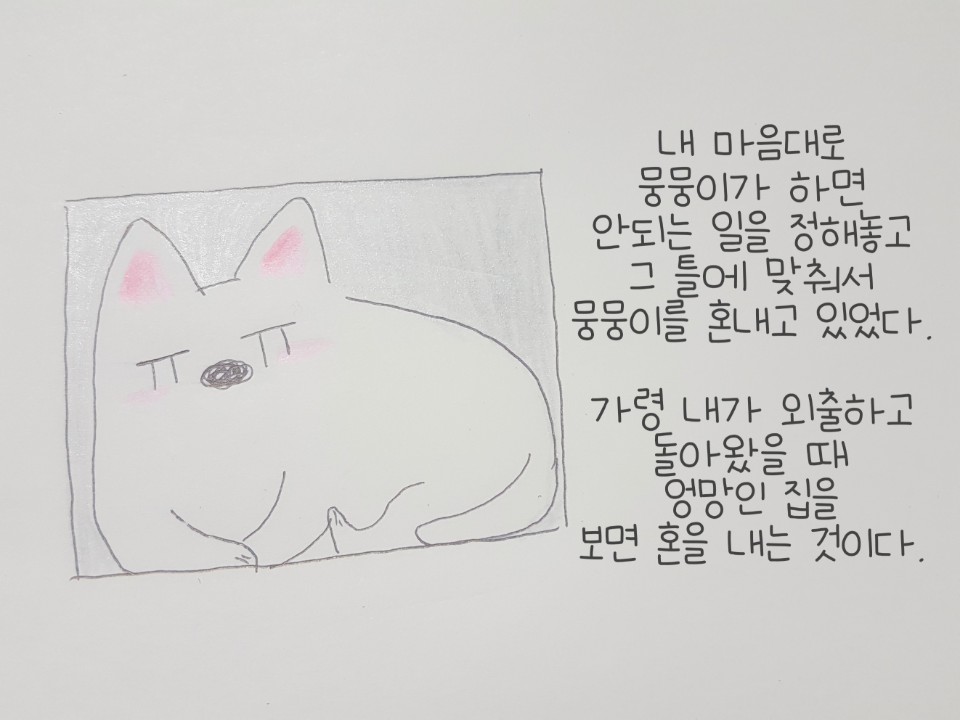 내 마음대로
뭉뭉이가 하면
안되는 일을 정해놓고
그 틀에 맞춰서
뭉뭉이를 혼내고 있었다.
가령 내가 외출하고
돌아왔을 때
엉망인 집을
보면 혼을 내는 것이다.